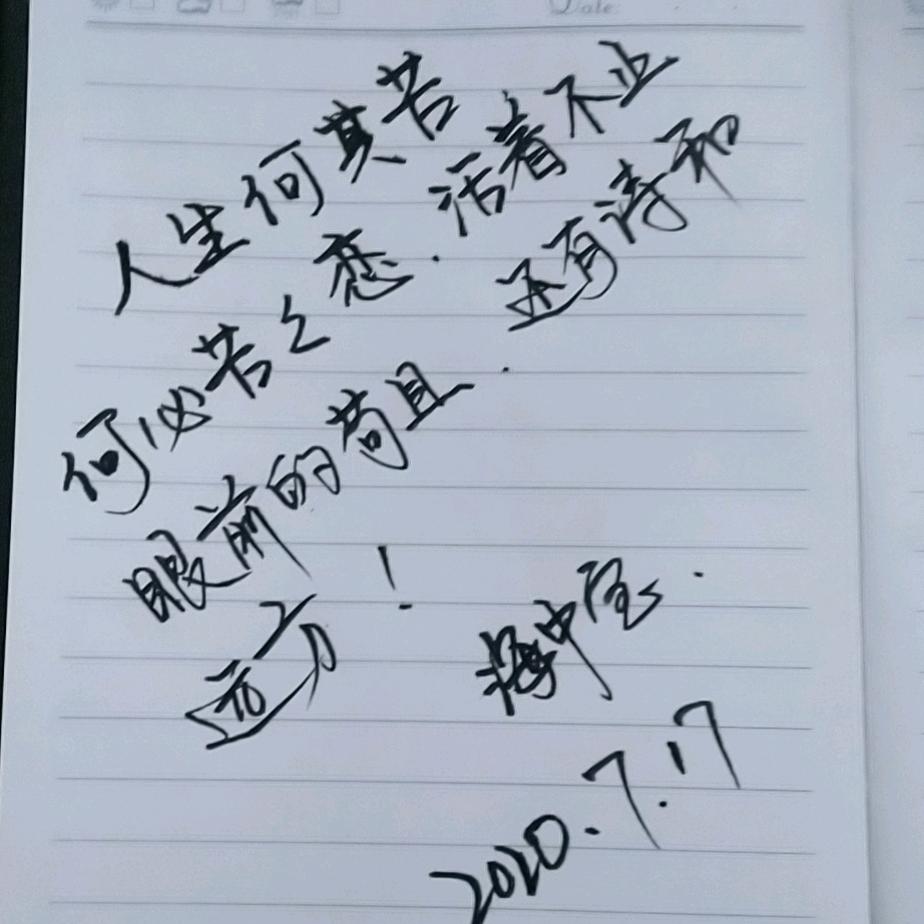 Date
人生何其苦
何必苦之恋.活着不止
眼前的苟且.还有诗和
远方！
海中宝.
2020.7.17